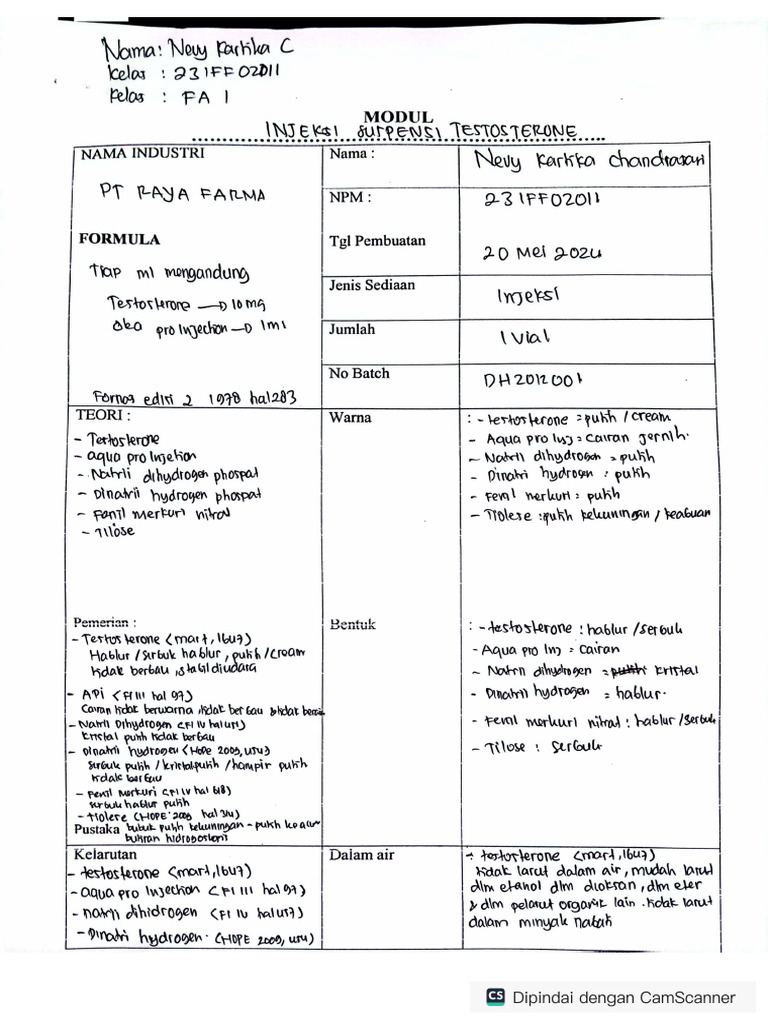 Nama: Nevy Kartika C
Kelas : 231FF02011
Kelas : FA 1
MODUL
INJEKSI SUSPENSI TESTOSTERONE
NAMA INDUSTRI
PT RAYA FARMA
FORMULA
Tiap ml mengandung
Testosterone → 10 mg
Aka pro Injection → 1 ml
Fornas edisi 2 1978 hal 283
Nama :
Nevy Kartika Chandrasari
NPM :
231FF02011
Tgl Pembuatan
20 Mei 2024
Jenis Sediaan
Injeksi
Jumlah
1 Vial
No Batch
DH2012001
TEORI :
- Testosterone
- aqua pro Injetion
- Natrii dihydrogen phospat
- Dinatrii hydrogen phospat
- Fenil merkuri nitral
- Tilose
Warna
: - testosterone = putih / cream
- Aqua pro Inj = Cairan jernih.
- Natrii dihydrogen = putih
- Dinatri hydrogen : putih
- Fenil merkuri = putih
- Tiolese : putih kekuningan / keabuan
Pemerian :
- Testosterone (mart, 1647)
Hablur / serbuk hablur, putih / cream
tidak berbau, stabil diudara
- API (FI III hal 97)
Cairan tidak berwarna, tidak berbau & tidak
- Natrii Dihydrogen (FI IV hal
Kristal putih tidak berbau
- Dinatrii hydrogen (HOPE 2009,
Serbuk putih / kristal putih / hampir putih
tidak berbau
- Fenil merkuri (FI IV hal
serbuk hablur putih
- tiolese (HOPE 2009 hal
Pustaka bubuk putih kekuningan - putih
bukran hidroposloni
Bentuk
: - testosterone : hablur / serbuk
- Aqua pro Inj = Cairan
- Natrii dihydrogen = putih kristal
- Dinatrii hydrogen = hablur.
- Fenil merkuri nitrat : hablur / serbuk
- Tilose : Serbuk
Kelarutan
- testosterone (mart, 1647)
- aqua pro Injection (FI III hal 97)
- natrii dihidrogen (FI IV hal
- Dinatri hydrogen. (HOPE 2009,
Dalam air
: testosterone (mart, 1647)
tidak larut dalam air, mudah larut
dlm etanol dlm dioksan, dlm eter
& dlm pelarut organik lain. tidak larut
dalam minyak nabati
CS Dipindai dengan CamScanner